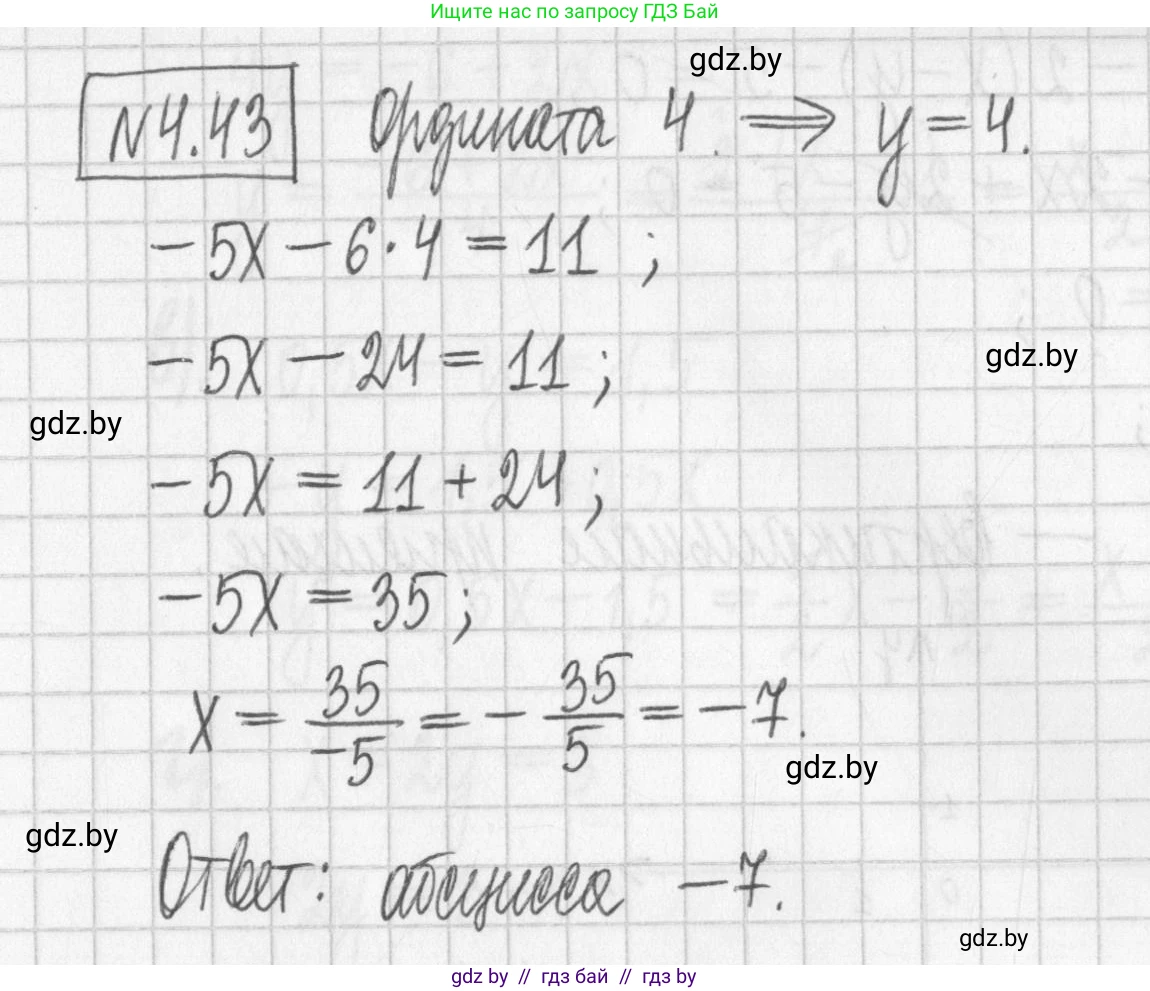 Ищите нас по запросу ГДЗ Бай
gdz.by
№4.43 Ордината 4. ⟹ y = 4.
− 5x − 6 · 4 = 11 ;
− 5x − 24 = 11 ;
gdz.by
gdz.by
− 5x = 11 + 24 ;
− 5x = 35 ;
x = 35/−5 = − 35/5 = − 7.
gdz.by
gdz.by
Ответ: абсцисса − 7.
gdz.by
gdz by // гдз бай // гдз by